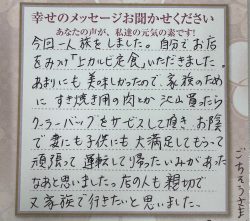 幸せのメッセージお聞かせください
あなたの声が、私達の元気の素です!
今回一人旅をしました。自分でお店
をみつけ「上カルビ定食」いただきました。
あまりにも美味しかったので、家族のため
にすき焼き用の肉とか沢山買ったら
クーラーバッグをサービスして頂き、お陰
で妻にも子供にも大満足してもらって
頑張って運転して帰ったかいがあった
なあと思いました。店の人も親切で
又家族で行きたいと思いました。
ごちそうさま